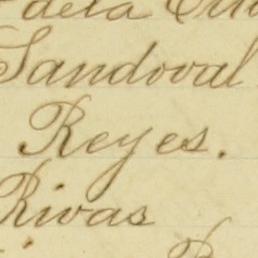 de la
Sandoval
Reyes.
Rivas